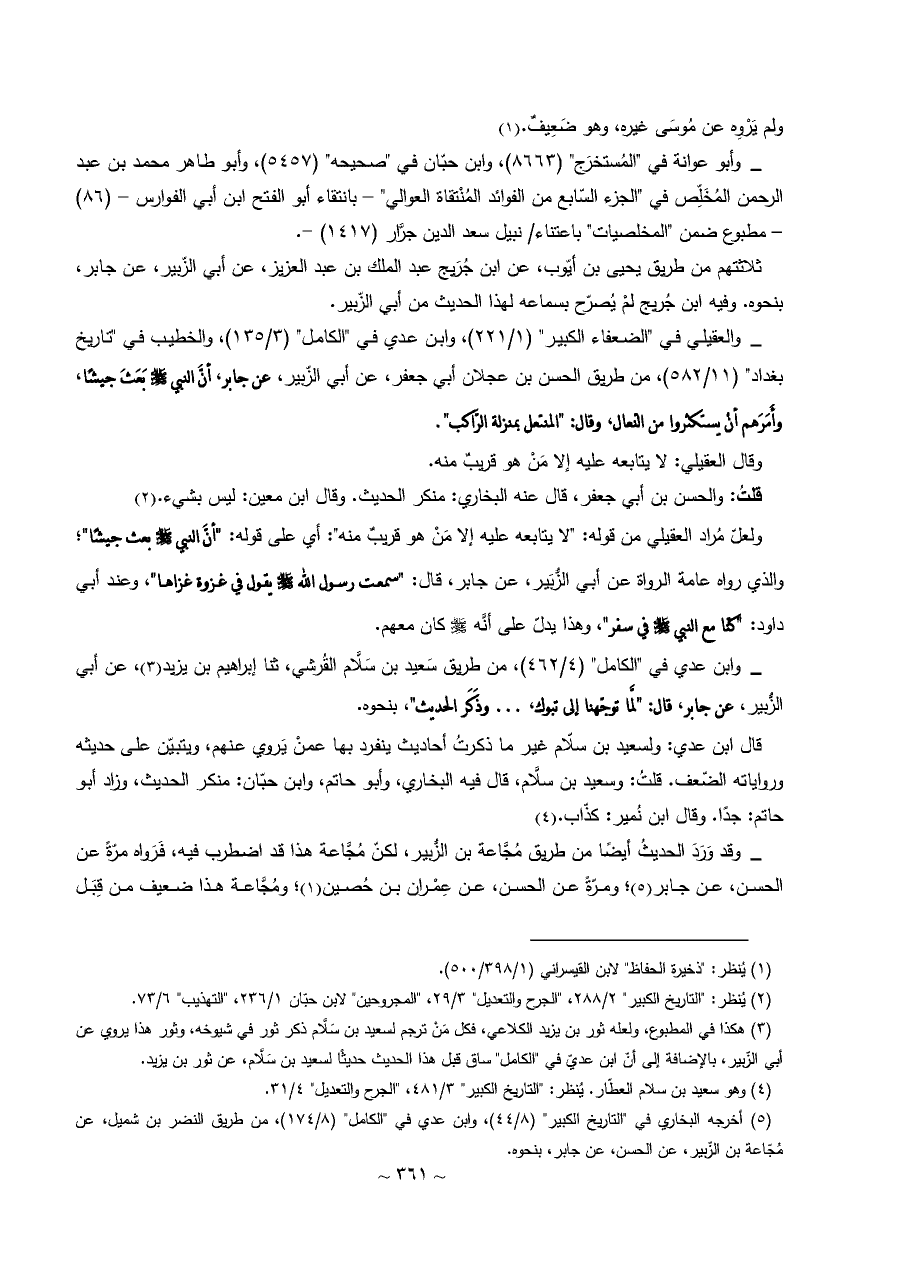 ولم يَرْوِه عن مُوسَى غيره، وهو ضَعِيفٌ.(١)
_ وأبو عوانة في "المُستخرَج" (٨٦٦٣)، وابن حبّان في "صحيحه" (٥٤٥٧)، وأبو طاهر محمد بن عبد
الرحمن المُخَلِّص في "الجزء السّابع من الفوائد المُنْتقاة العوالي" – بانتقاء أبو الفتح ابن أبي الفوارس – (٨٦)
– مطبوع ضمن "المخلصيات" باعتناء/ نبيل سعد الدين جرَّار (١٤١٧) –.
ثلاثتهم من طريق يحيى بن أيّوب، عن ابن جُرَيج عبد الملك بن عبد العزيز، عن أبي الزّبير، عن جابر،
بنحوه. وفيه ابن جُريج لمْ يُصرّح بسماعه لهذا الحديث من أبي الزّبير.
_ والعقيلي في "الضعفاء الكبير" (٢٢١/١)، وابن عدي في "الكامل" (١٣٥/٣)، والخطيب في "تاريخ
بغداد" (٥٨٢/١١)، من طريق الحسن بن عجلان أبي جعفر، عن أبي الزّبير، عن جابر، أنَّ النبي ﷺ بَعَثَ جيشًا،
وأَمَرَهم أنْ يستكثروا من النعال، وقال: "المنتعل بمنزلة الرَّاكب".
وقال العقيلي: لا يتابعه عليه إلا مَنْ هو قريبٌ منه.
قلتُ: والحسن بن أبي جعفر، قال عنه البخاري: منكر الحديث. وقال ابن معين: ليس بشيء.(٢)
ولعلّ مُراد العقيلي من قوله: "لا يتابعه عليه إلا مَنْ هو قريبٌ منه": أي على قوله: "أنَّ النبي ﷺ بعث جيشًا"؛
والذي رواه عامة الرواة عن أبي الزُّبَير، عن جابر، قال: "سمعت رسول الله ﷺ يقول في غزوة غزاها"، وعند أبي
داود: "كنَّا مع النبي ﷺ في سفر"، وهذا يدلّ على أنَّه ﷺ كان معهم.
_ وابن عدي في "الكامل" (٤٦٢/٤)، من طريق سَعيد بن سَلَّام القُرشي، ثنا إبراهيم بن يزيد(٣)، عن أبي
الزُّبير، عن جابر، قال: "لمَّا توجّهنا إلى تبوك، ... وذَكَر الحديث"، بنحوه.
قال ابن عدي: ولسعيد بن سلّام غير ما ذكرتُ أحاديث ينفرد بها عمنْ يَروي عنهم، ويتبيّن على حديثه
ورواياته الضّعف. قلتُ: وسعيد بن سلَّام، قال فيه البخاري، وأبو حاتم، وابن حبّان: منكر الحديث، وزاد أبو
حاتم: جدًا. وقال ابن نُمير: كذّاب.(٤)
_ وقد وَرَدَ الحديثُ أيضًا من طريق مُجَّاعة بن الزُّبير، لكنّ مُجَّاعة هذا قد اضطرب فيه، فَرَواه مرّةً عن
الحسن، عن جابر(٥)؛ ومرّةً عن الحسن، عن عِمْران بن حُصين(١)؛ ومُجَّاعة هذا ضعيف من قِبَل
(١) يُنظر: "ذخيرة الحفاظ" لابن القيسراني (٥٠٠/٣٩٨/١).
(٢) يُنظر: "التاريخ الكبير" ٢٨٨/٢، "الجرح والتعديل" ٢٩/٣، "المجروحين" لابن حبّان ٢٣٦/١، "التهذيب" ٧٣/٦.
(٣) هكذا في المطبوع، ولعله ثور بن يزيد الكلاعي، فكل مَنْ ترجم لسعيد بن سَلَّام ذكر ثور في شيوخه، وثور هذا يروي عن
أبي الزّبير، بالإضافة إلى أنّ ابن عديّ في "الكامل" ساق قبل هذا الحديث حديثًا لسعيد بن سَلَّام، عن ثور بن يزيد.
(٤) وهو سعيد بن سلام العطّار. يُنظر: "التاريخ الكبير" ٤٨١/٣، "الجرح والتعديل" ٣١/٤.
(٥) أخرجه البخاري في "التاريخ الكبير" (٤٤/٨)، وابن عدي في "الكامل" (١٧٤/٨)، من طريق النضر بن شميل، عن
مُجّاعة بن الزّبير، عن الحسن، عن جابر، بنحوه.
~ ٣٦١ ~